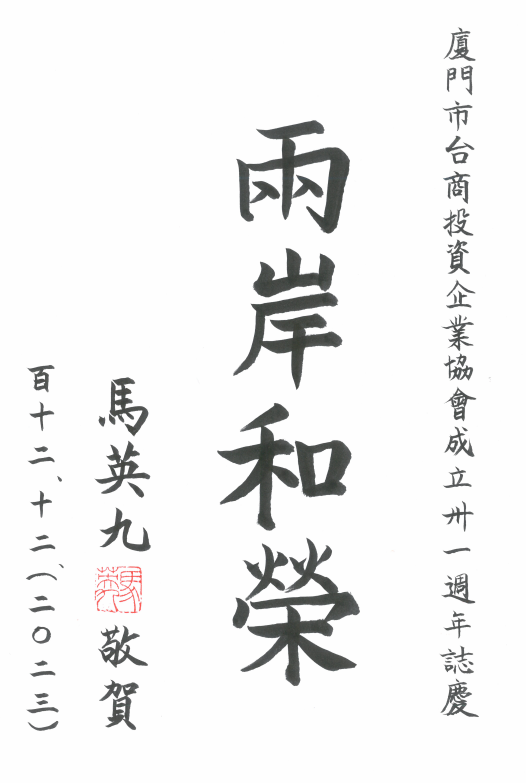 廈門市台商投資企業協會成立卅一週年誌慶
兩岸和榮
馬英九敬賀
百十二、十二、(二〇二三)